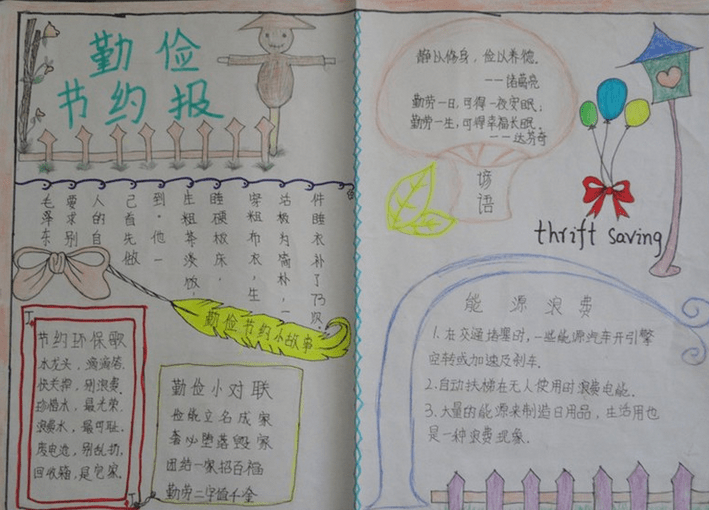 勤俭
节约报
毛泽东
要求别
人的自
己首先做
到。他一
生粗茶淡饭,
睡硬板床,
穿粗布衣,生
活极为简朴,一
件睡衣补了73次。
勤俭节约小故事
节约环保歌
水龙头,滴滴答,
快关掉,别浪费。
珍惜水,最光荣,
浪费水,最可耻。
废电池,别乱扔,
回收箱,是它家。
勤俭小对联
俭能立名成家
奢必堕落毁家
团结一家招百福
勤劳二字值千金
静以修身,俭以养德。
——诸葛亮
勤劳一日,可得一夜安眠;
勤劳一生,可得幸福长眠。
——达芬奇
谚语
thrift saving
能源浪费
1.在交通堵塞时,一些能源汽车开引擎
空转或加速及刹车.
2.自动扶梯在无人使用时浪费电能.
3.大量的能源来制造日用品,生活用也
是一种浪费现象.